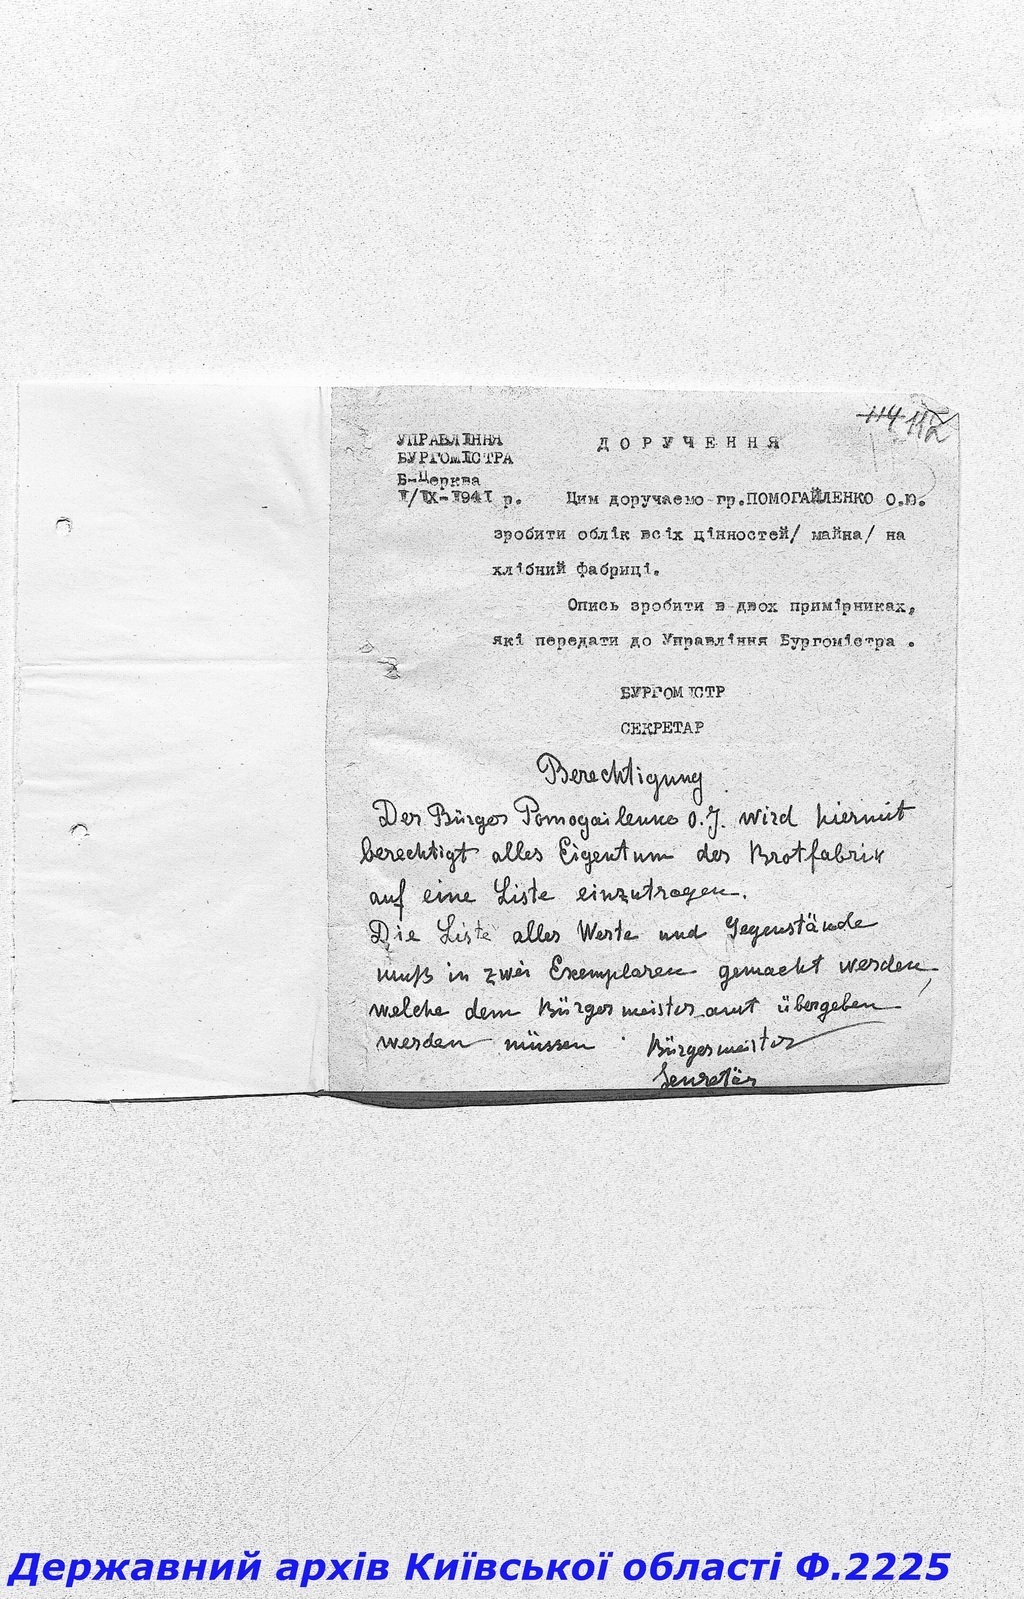 114 112
УПРАВЛІННЯ
БУРГОМІСТРА
Б-Церква
I/IX-1941 р.
ДОРУЧЕННЯ
Цим доручаємо гр.ПОМОГАЙЛЕНКО О.Ю.
зробити облік всіх цінностей/ майна/ на
хлібний фабриці.
Опись зробити в двох примірниках,
які передати до Управління Бургомістра .
БУРГОМІСТР
СЕКРЕТАР
Berechtigung
Der Bürger Pomogailenko O.J. wird hiermit
berechtigt alles Eigentum der Brotfabrik
auf eine Liste einzutragen.
Die Liste aller Werte und Gegenstände
muß in zwei Exemplaren gemacht werden,
welche dem Bürgermeisteramt übergeben
werden müssen. Bürgermeister
Sekretär
Державний архів Київської області Ф.2225